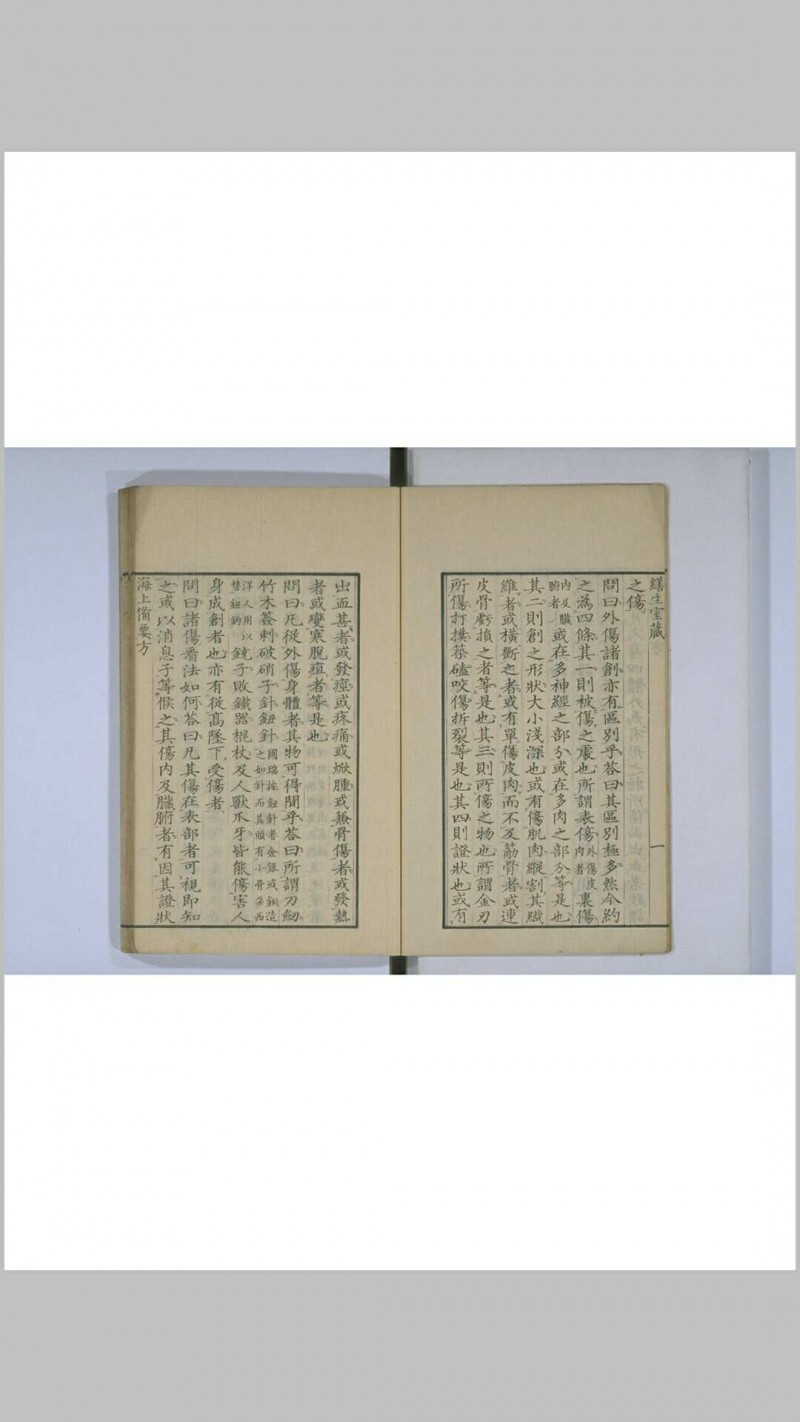 繕生室藏
一
之傷
問曰外傷諸創亦有區別乎荅曰其區別極多然今約
之為四條其一則被傷之處也所謂表傷外傷皮肉者裏傷
內及臟腑者或在多神經之部分或在多肉之部分等是也
其二則創之形狀大小淺深也或有傷肌肉縱割其纎
維者或橫斷之者或有單傷皮肉而不及筋骨者或連
皮骨虧損之者等是也其三則所傷之物也所謂金刃
所傷打撲築磕咬傷折裂等是也其四則證狀也或有
出血甚者或發痙或疼痛或焮腫或兼骨傷者或發熱
者或變寒脫疽者等是也
問曰凡從外傷身體者其物可得聞乎荅曰所謂刀劒
竹木簽刺破硝子針鈕針國瑞按鈕針者金銀或銅造之如針而其頭有小骨朶西
洋人用以替鈕鉤鏡子敗鐵器棍杖及人獸爪牙皆能傷害人
身成創者也亦有從高墜下受傷者
問曰諸傷看法如何荅曰凡其傷在表部者可視即知
之或以消息子等候之其傷內及臟腑者有因其證狀
海上備要方